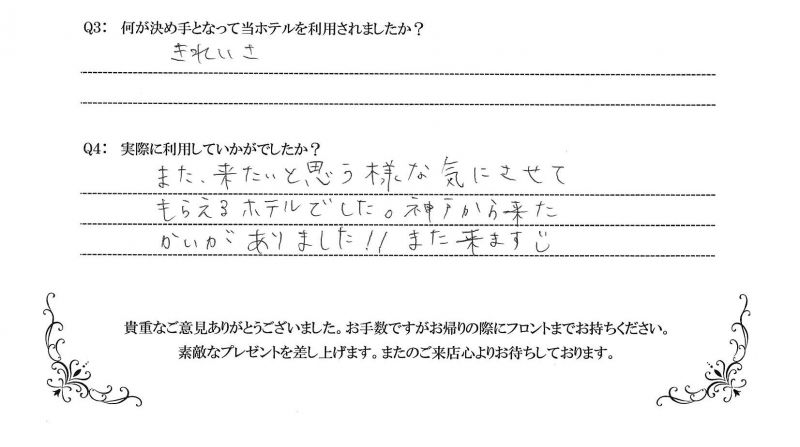 Q3： 何が決め手となって当ホテルを利用されましたか？
きれいさ
Q4： 実際に利用していかがでしたか？
また、来たいと思う様な気にさせて
もらえるホテルでした。神戸から来た
かいがありました!! また来ます
貴重なご意見ありがとうございました。お手数ですがお帰りの際にフロントまでお持ちください。
素敵なプレゼントを差し上げます。またのご来店心よりお待ちしております。